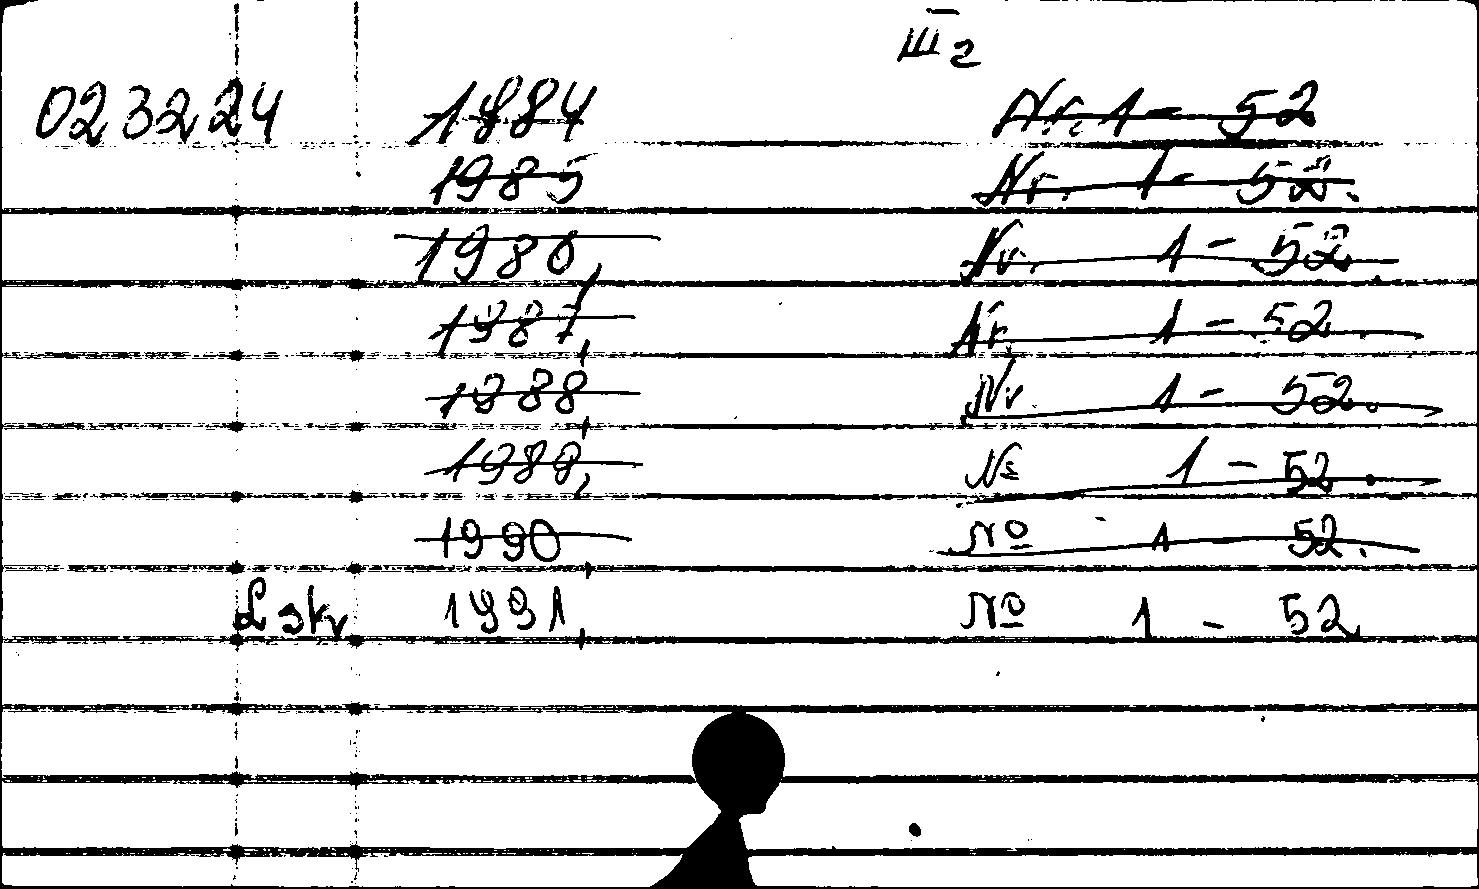 III 2
023224 1984 Nr. 1 - 52
1985 Nr. 1 - 52.
1986, Nr. 1 - 52.
1987, Nr, 1 - 52.
1988, Nr 1 - 52.
1989, № 1 - 52.
1990, № 1 - 52.
1991, № 1 - 52.